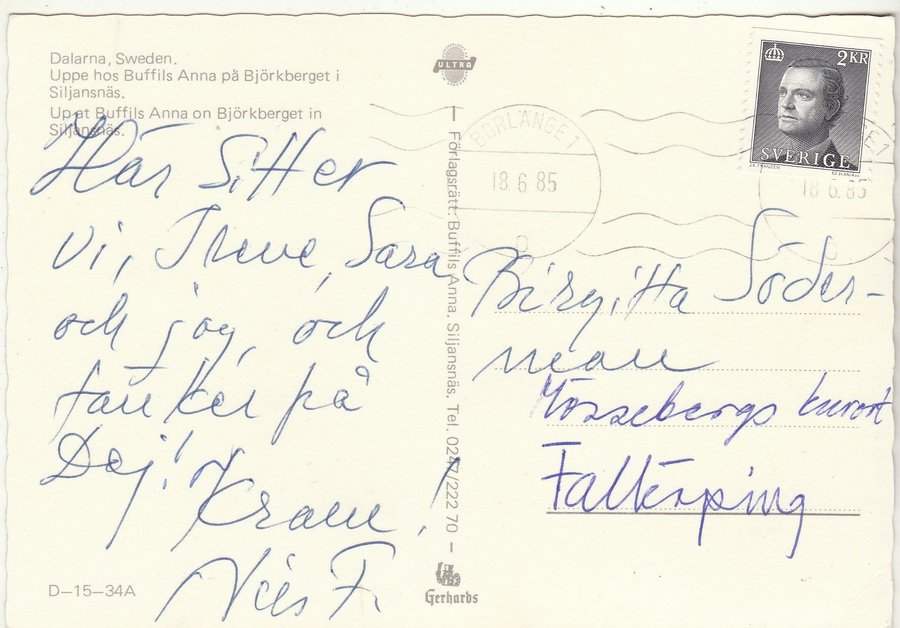 Dalarna, Sweden.
Uppe hos Buffils Anna på Björkberget i
Siljansnäs.
Up at Buffils Anna on Björkberget in
Siljansnäs.
Här sitter
vi, Irene, Sara
och jag, och
tänker på
Dej!
Kram!
Nils F.
D-15-34A
ULTRA
Förlagsrätt: Buffils Anna. Siljansnäs. Tel. 0247/222 70
Gerhards
BORLÄNGE 1
18.6.85
2KR
SVERIGE
18 6.85
Birgitta Söder-
man
Mössebergs kurort
Falköping